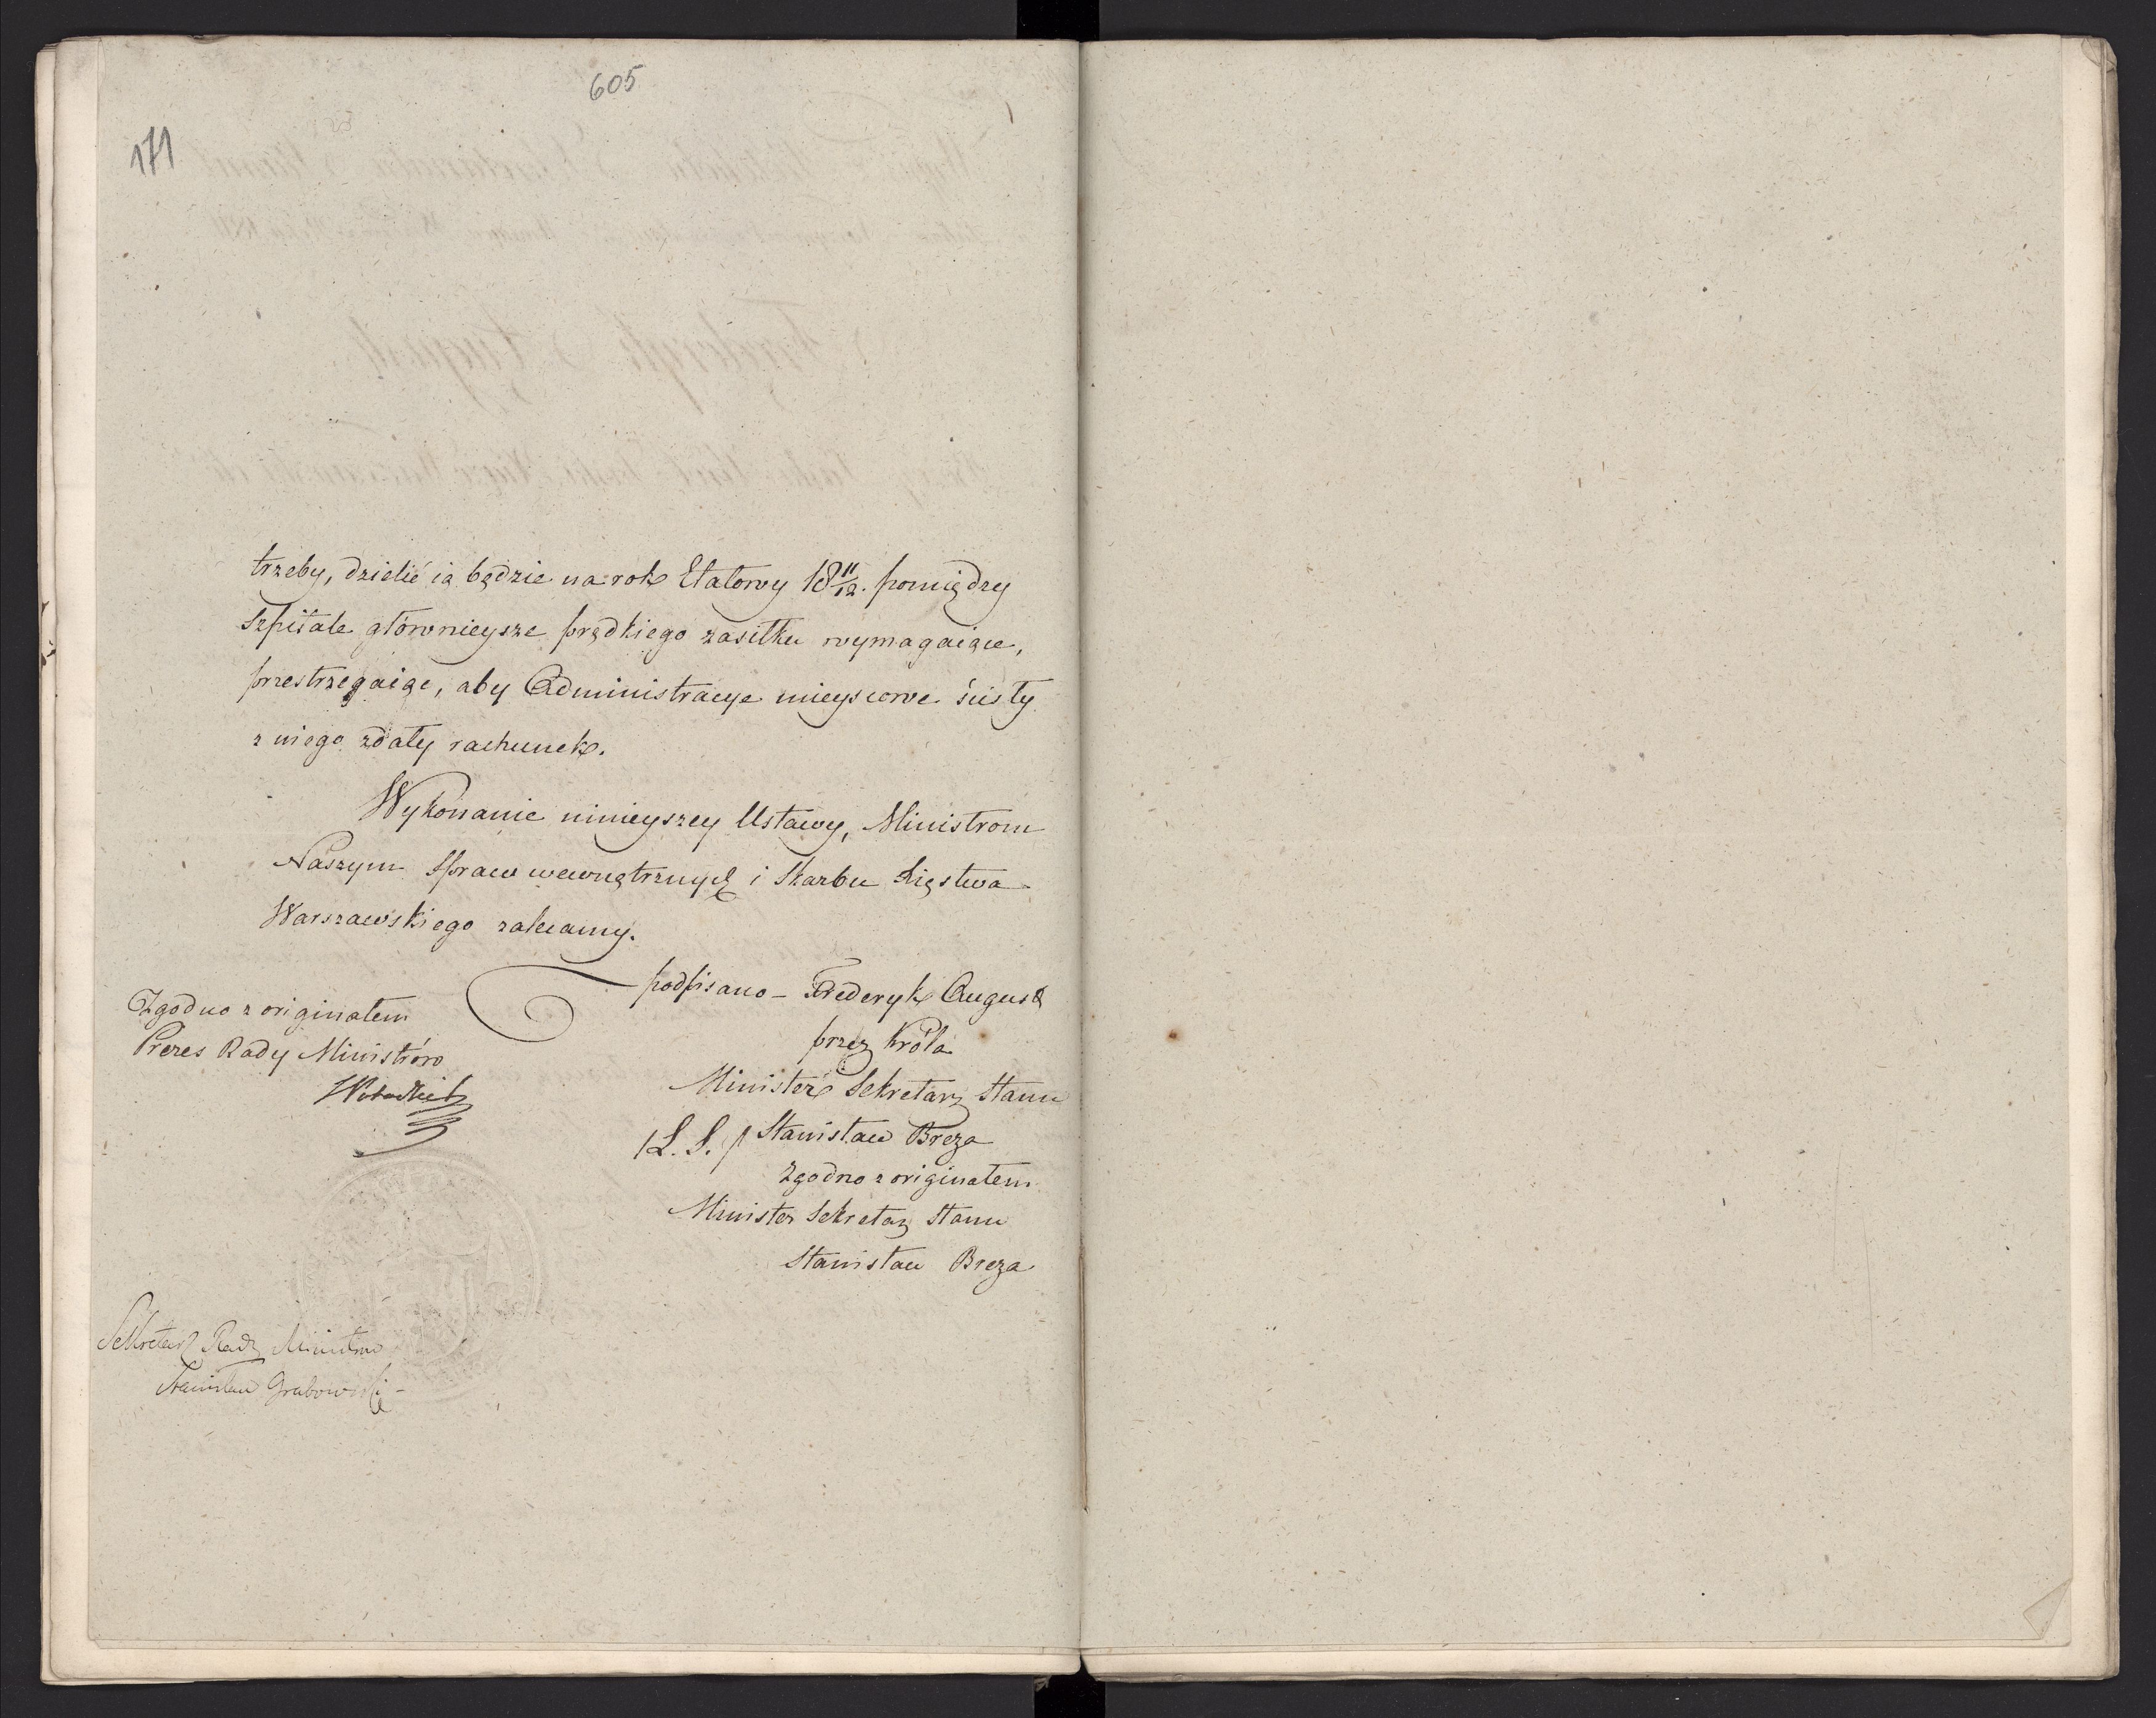 605
171
trzeby, dzielić ią będzie na rok Etatowy 18 11/12. pomiędzy
Szpitale główniejsze prędkiego zasiłku wymagaiące,
przestrzegaiąc, aby Administracye mieyscowe ścisły
z niego zdały rachunek.
Wykonanie ninieyszey Ustawy, Ministrom
Naszym Spraw wewnętrznych i Skarbu Xięstwa
Warszawskiego zalecamy.
podpisano - Frederyk August
przez Króla
Minister Sekretarz Stanu
/L. S./ Stanisław Breza
Zgodno z originałem
Minister Sekretarz Stanu
Stanisław Breza
Zgodno z originałem
Prezes Rady Ministrów
Sekretarz Rady Ministrów
Stanisław Grabowski -